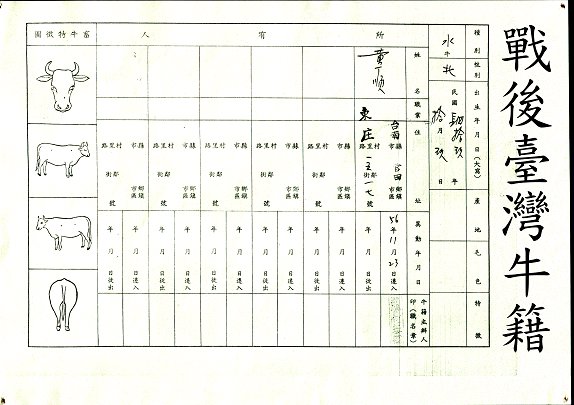 戰後臺灣牛籍
種別 性別 出生年月日(大寫) 產地 毛色 特徵
水牛 牝 民國 肆拾玖 年
拾月 玖 日
所有人
姓名 職業 住址 異動年月日 牛籍主辦人印(職名章)
台南 縣市 官田 鄉鎮市區 56年11月23日遷入
黃丁順 東庄 村里路 鄰街 一五一七 號 年月日徙出
縣市 鄉鎮市區 年月日遷入
村里路 鄰街 號 年月日徙出
縣市 鄉鎮市區 年月日遷入
村里路 鄰街 號 年月日徙出
縣市 鄉鎮市區 年月日遷入
村里路 鄰街 號 年月日徙出
縣市 鄉鎮市區 年月日遷入
村里路 鄰街 號 年月日徙出
縣市 鄉鎮市區 年月日遷入
村里路 鄰街 號 年月日徙出
畜牛特徵圖